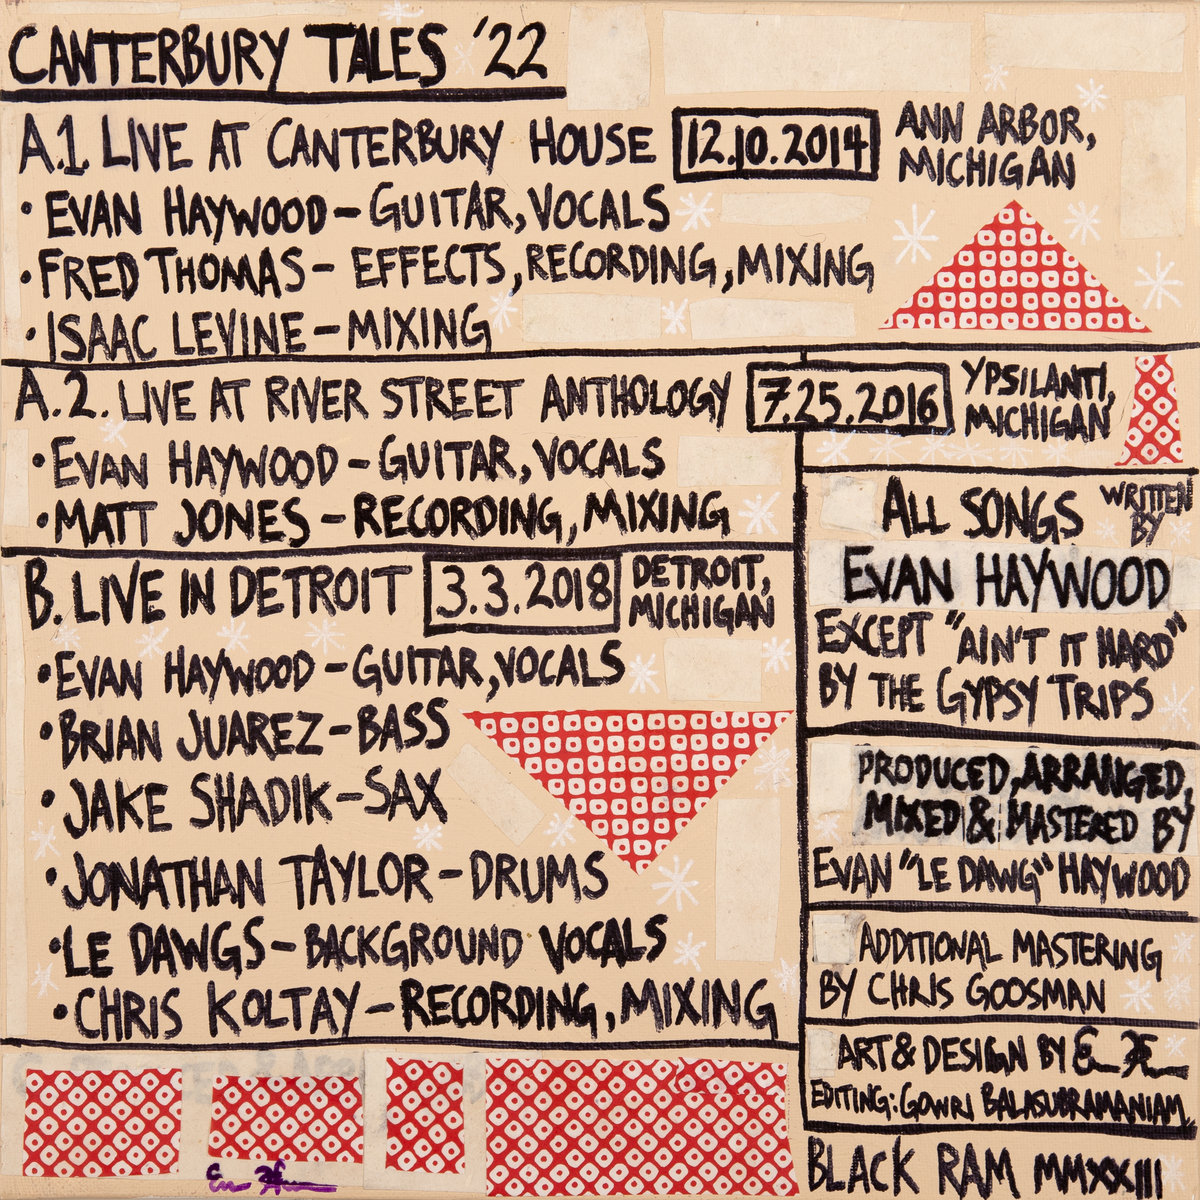 CANTERBURY TALES '22
A.1 LIVE AT CANTERBURY HOUSE 12.10.2014 ANN ARBOR,
MICHIGAN
• EVAN HAYWOOD – GUITAR, VOCALS
• FRED THOMAS – EFFECTS, RECORDING, MIXING
• ISAAC LEVINE – MIXING
A.2. LIVE AT RIVER STREET ANTHOLOGY 7.25.2016 YPSILANTI,
MICHIGAN
• EVAN HAYWOOD – GUITAR, VOCALS
• MATT JONES – RECORDING, MIXING
B. LIVE IN DETROIT 3.3.2018 DETROIT,
MICHIGAN
• EVAN HAYWOOD – GUITAR, VOCALS
• BRIAN JUAREZ – BASS
• JAKE SHADIK – SAX
• JONATHAN TAYLOR – DRUMS
• LE DAWGS – BACKGROUND VOCALS
• CHRIS KOLTAY – RECORDING, MIXING
ALL SONGS WRITTEN
BY
EVAN HAYWOOD
EXCEPT "AIN'T IT HARD"
BY THE GYPSY TRIPS
PRODUCED, ARRANGED,
MIXED & MASTERED BY
EVAN "LE DAWG" HAYWOOD
ADDITIONAL MASTERING
BY CHRIS GOOSMAN
ART & DESIGN BY
EDITING: GOWRI BALASUBRAMANIAM
BLACK RAM MMXXIII